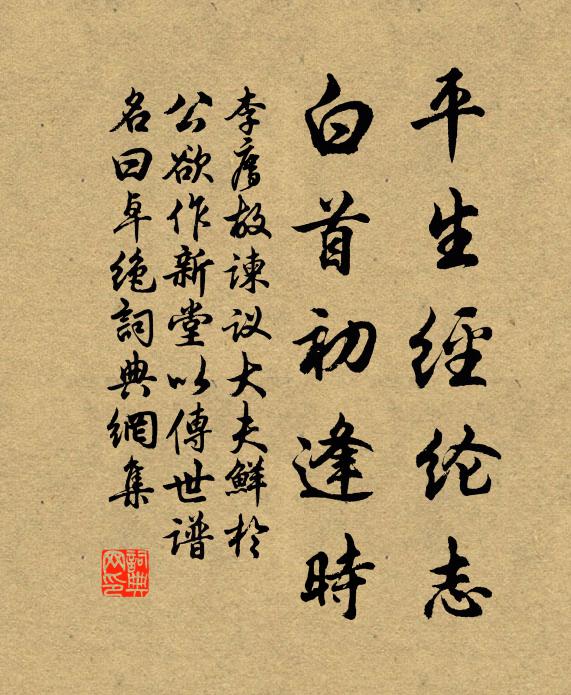 平生經纶志
白首初逢時
李廌故諫议大夫鮮於
公欲作新堂以傳世谱
名曰卓絶詞典網集
詞典
网印